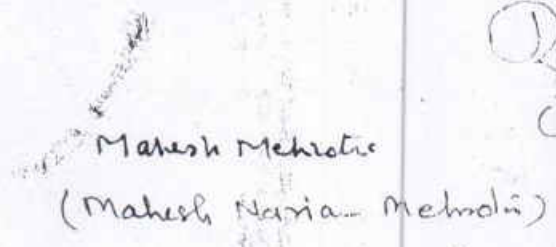 Mahesh Mehrotra
(Mahesh Narain Mehrotra)